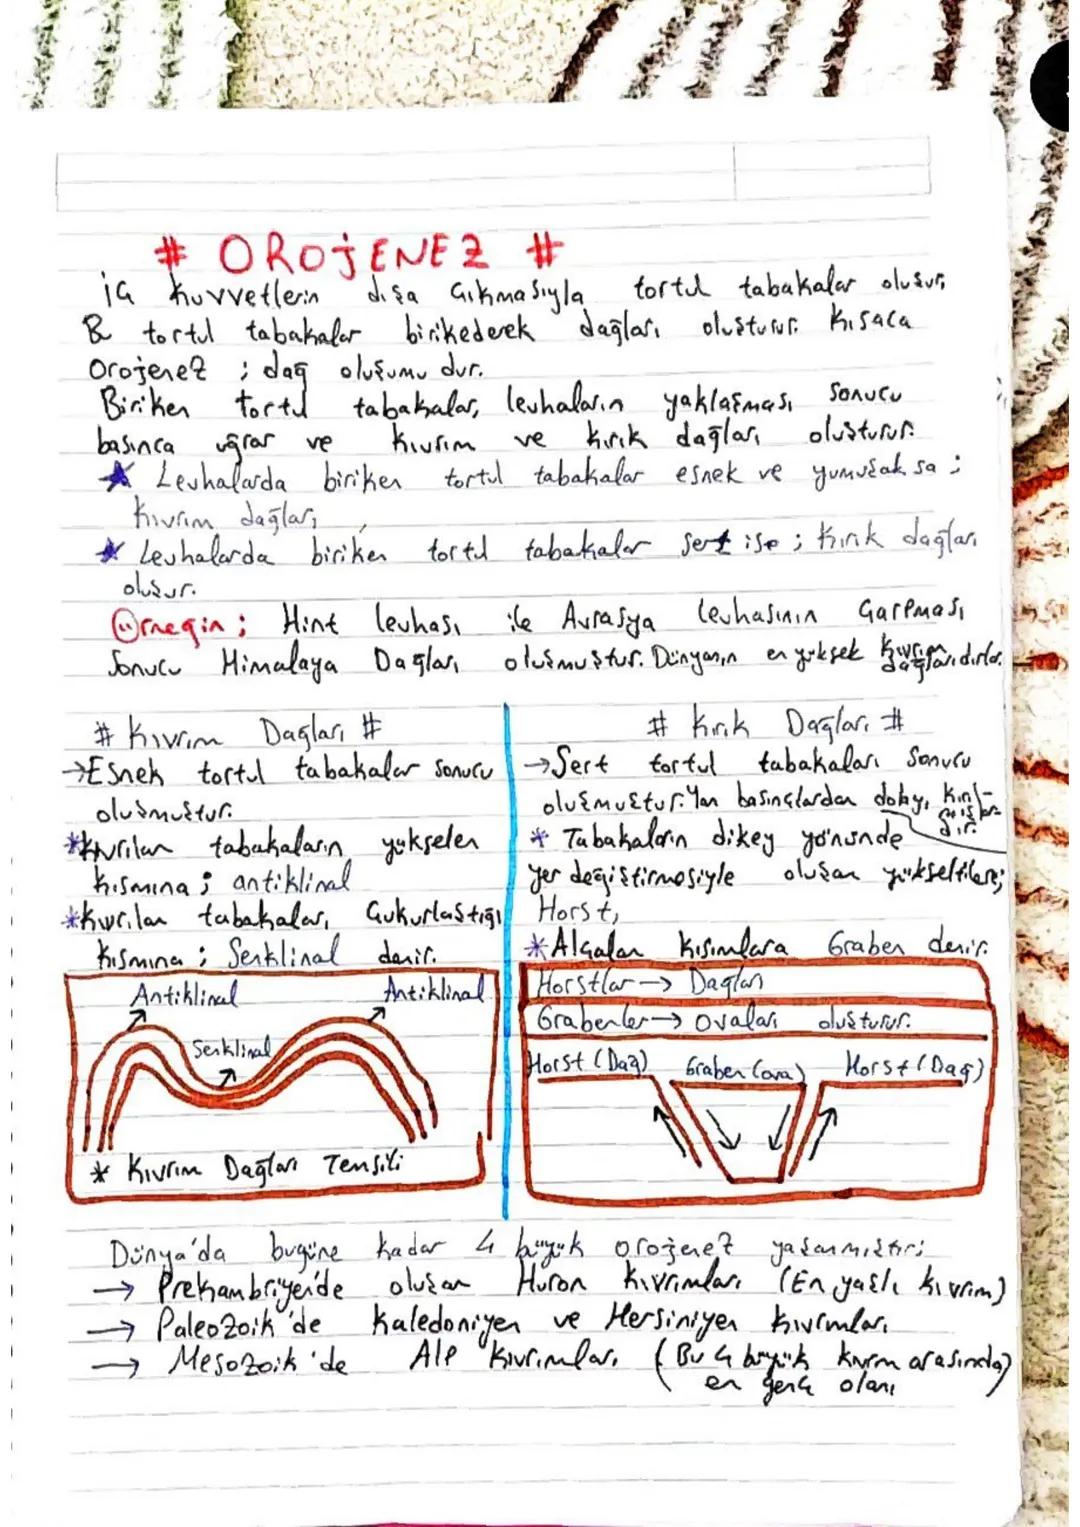 # OROJENEZ #
iç kuvvetlerin dışa çıkmasıyla tortul tabakalar oluşur,
B tortul tabakalar birikederek dağları oluşturur. Kısaca
Orojenez ; dağ oluşumu dur.
Biriken tortul tabakalar, levhaların yaklaşması sonucu
basınca uğrar ve kıvrım ve kırık dağları oluşturur.
* Levhalarda biriken tortul tabakalar esnek ve yumuşak sa ;
kıvrım dağları,
* Levhalarda biriken tortul tabakalar sert ise ; kırık dağları
oluşur.
Örneğin ; Hint levhası ile Avrasya levhasının çarpması
sonucu Himalaya Dağları oluşmuştur. Dünyanın en yüksek kıvrım
dağlarıdırlar.
# Kıvrım Dağları #
→Esnek tortul tabakalar sonucu
oluşmuştur.
*Kıvrılan tabakaların yükselen
kısmına ; antiklinal
*Kıvrılan tabakaları çukurlaştığı
kısmına ; Senklinal denir.
Antiklinal Antiklinal
Senklinal
* Kıvrım Dağları Temsili
# Kırık Dağları #
→Sert tortul tabakaları sonucu
oluşmuştur. Yan basınçlardan dolayı kırıl-
mışlar-
dır.
* Tabakaların dikey yönünde
yer değiştirmesiyle oluşan yükseltilere;
Horst,
*Alçalan kısımlara Graben denir.
Horstlar → Dağları
Grabenler → Ovaları oluşturur.
Horst (Dağ) Graben (ova) Horst (Dağ)
Dünya'da bugüne kadar 4 büyük orojenez yaşanmıştır;
→ Prekambriyen'de oluşan Huron kıvrımları (En yaşlı kıvrım)
→ Paleozoik'de Kaledoniyen ve Hersiniyen kıvrımları
→ Mesozoik'de Alp kıvrımları (Bu 4 büyük kıvrım arasında)
en genç olanı